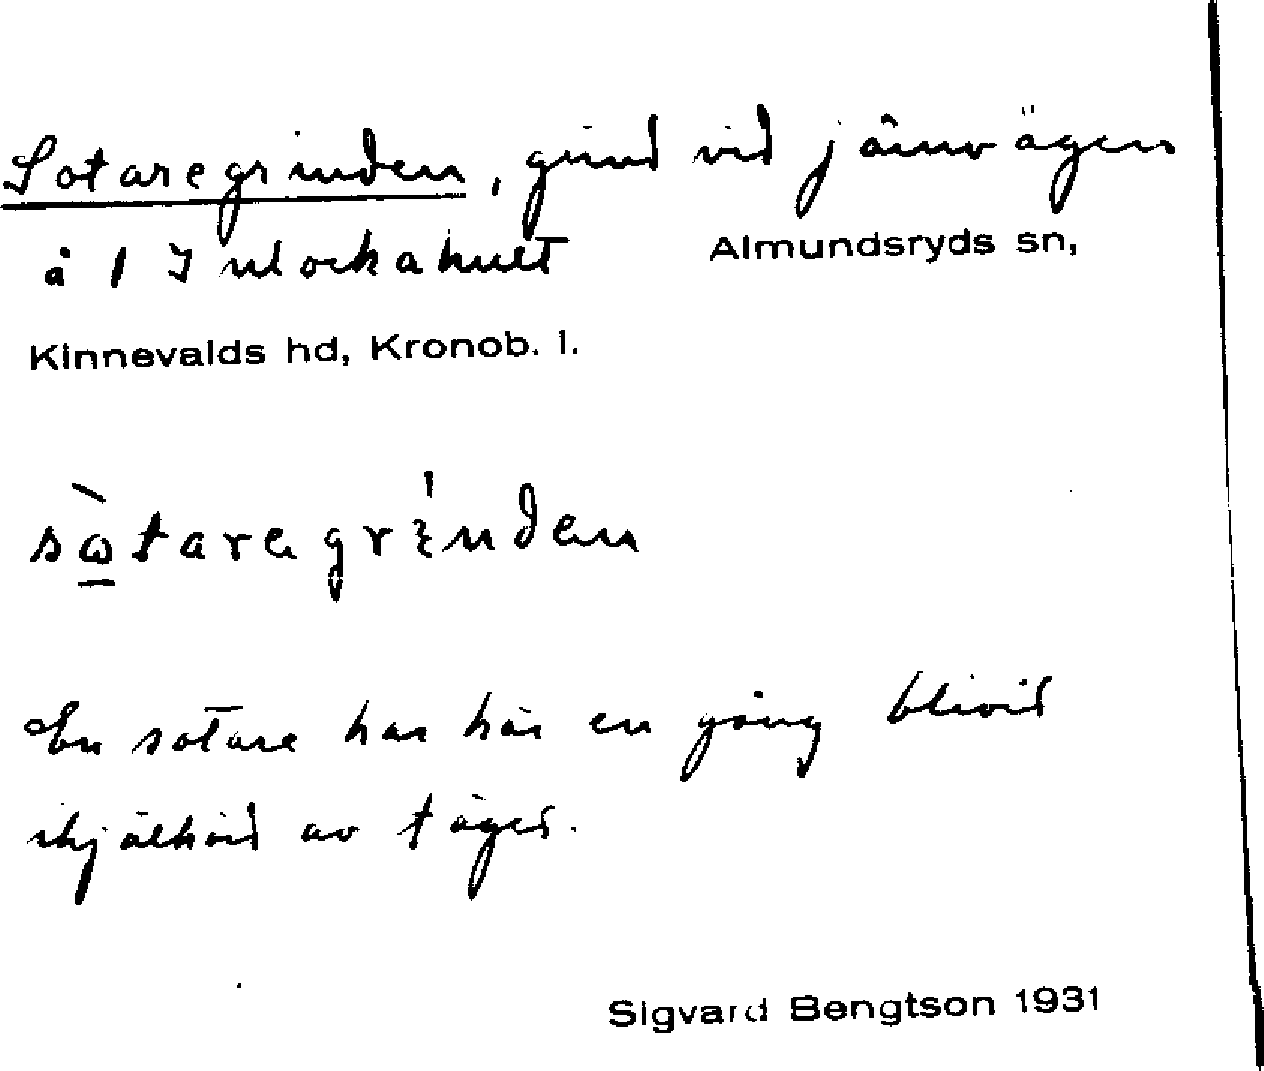 Sotaregrinden, grind vid järnvägen
å 1 Julockahult Almundsryds sn,
Kinnevalds hd, Kronob. l.
sòtaregrinden
En sotare har här en gång blivit
ihjälkörd av tåget.
Sigvard Bengtson 1931